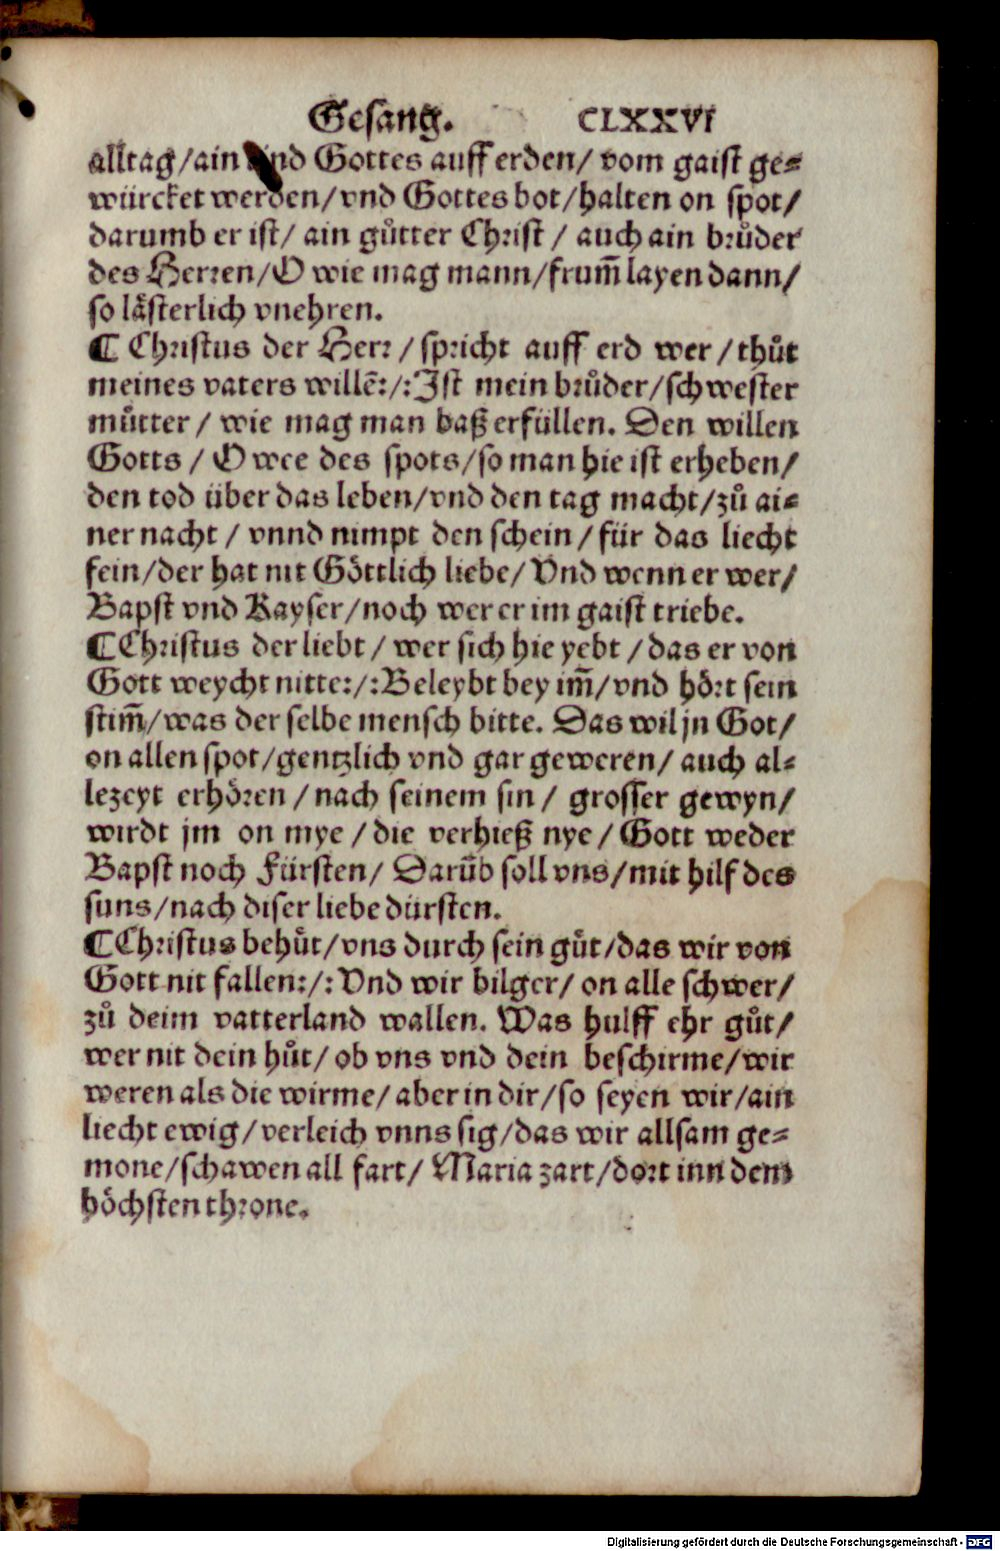 Gesang. CLXXVI
alltag/ain kind Gottes auff erden/ vom gaist ge⸗
würcket werden/vnd Gottes bot/halten on spot/
darumb er ist/ ain gůtter Christ / auch ain brůder
des Herren/O wie mag mann/frum̃ layen dann/
so lästerlich vnehren.
¶ Christus der Herr / spricht auff erd wer /thůt
meines vaters willẽ:/:Ist mein brůder/schwester
můtter / wie mag man baß erfüllen. Den willen
Gotts / O wee des spots/so man hie ist erheben/
den tod über das leben/vnd den tag macht/zů ai⸗
ner nacht / vnnd nimpt den schein / für das liecht
fein/der hat nit Göttlich liebe/ Vnd wenn er wer/
Bapst vnd Kayser/noch wer er im gaist triebe.
¶Christus der liebt / wer sich hie yebt /das er von
Gott weycht nitte:/:Beleybt bey im̃/vnd hört sein
stim̃/was der selbe mensch bitte. Das wil jn Got/
on allen spot/gentzlich vnd gar geweren/ auch al⸗
lezeyt erhören /nach seinem sin / grosser gewyn/
wirdt jm on mye /die verhieß nye / Gott weder
Bapst noch Fürsten/ Darũb soll vns/mit hilf des
suns/nach diser liebe dürsten.
¶Christus behůt/vns durch sein gůt/das wir von
Gott nit fallen:/:Vnd wir bilger/ on alle schwer/
zů deim vatterland wallen. Was hulff ehr gůt/
wer nit dein hůt/ ob vns vnd dein beschirme/wir
weren als die wirme/ aber in dir/so seyen wir/ain
liecht ewig/verleich vnns sig/das wir allsam ge⸗
mone/schawen all fart/ Maria zart/dort inn dem
höchsten throne.
Digitalisierung gefördert durch die Deutsche Forschungsgemeinschaft - DFG